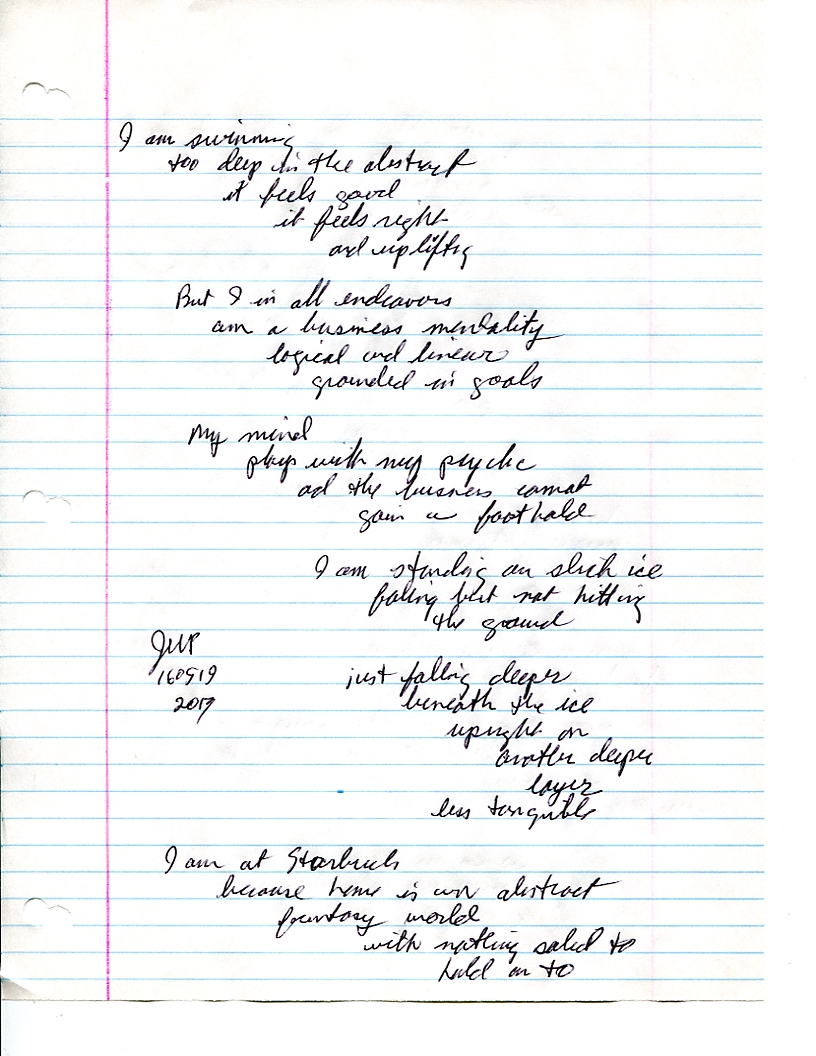 I am swimming
too deep in the abstract
it feels good
it feels right
and uplifting
But I in all endeavors
am a business mentality
logical and linear
grounded in goals
My mind
plays with my psyche
and the business cannot
gain a foothold
I am standing on slick ice
falling but not hitting
the ground
160919
2019
just falling deeper
beneath the ice
upright on
another deeper
layer
less tangible
I am at Starbucks
because home is an abstract
fantasy world
with nothing solid to
hold on to